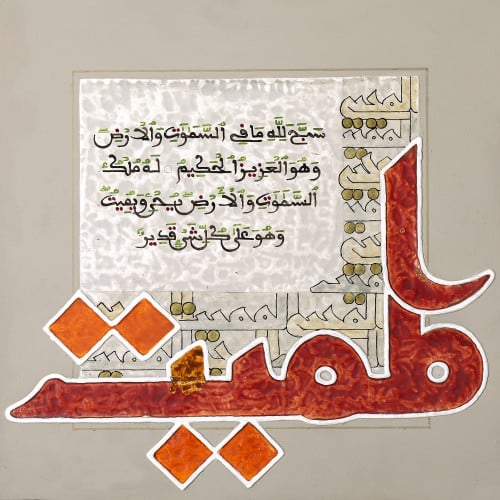 سَبَّحَ لِلَّهِ مَا فِي السَّمَوَتِ وَالْأَرْضِ
وَهُوَ الْعَزِيزُ الْحَكِيمُ لَهُ مُلْكُ
السَّمَوَتِ وَالْأَرْضِ يُحْيِ وَيُمِيتُ
وَهُوَ عَلَى كُلِّ شَيْءٍ قَدِيرٌ
المميت